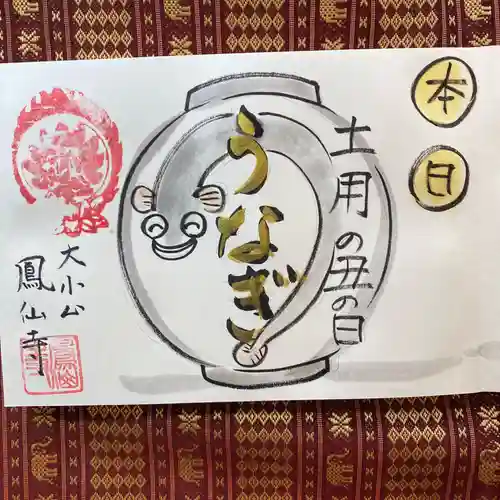 本日
土用の丑の日
うなぎ
大小山
鳳仙寺